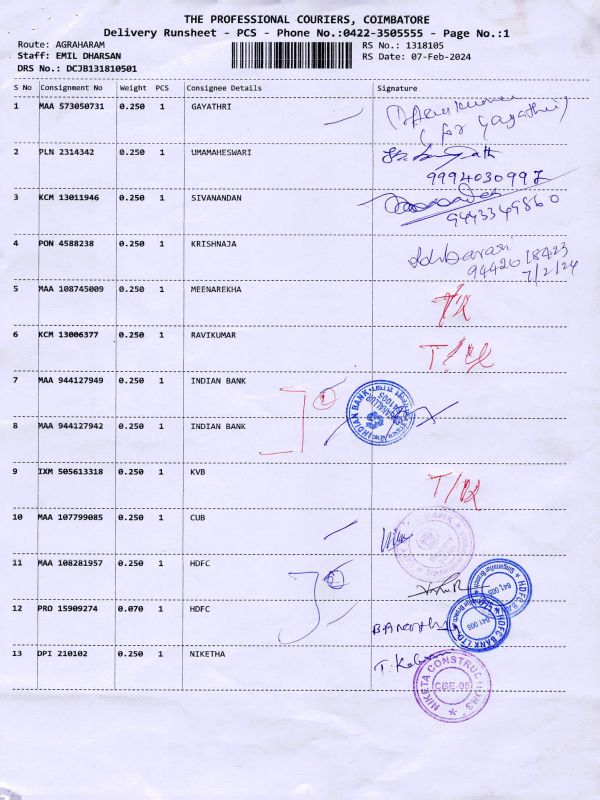 THE PROFESSIONAL COURIERS, COIMBATORE
Delivery Runsheet - PCS - Phone No.:0422-3505555 - Page No.:1
Route: AGRAHARAM
RS No.: 1318105
Staff: EMIL DHARSAN
RS Date: 07-Feb-2024
DRS No.: DCJB131810501
S No Consignment No Weight PCS Consignee Details Signature
1 MAA 573050731 0.250 1 GAYATHRI
(for Gayathri)
2 PLN 2314342 0.250 1 UMAMAHESWARI
9994030997
3 KCM 13011946 0.250 1 SIVANANDAN
9443349860
4 PON 4588238 0.250 1 KRISHNAJA
9442018423
7/2/24
5 MAA 108745009 0.250 1 MEENAREKHA
6 KCM 13006377 0.250 1 RAVIKUMAR
7 MAA 944127949 0.250 1 INDIAN BANK
INDIAN BANK
641005
8 MAA 944127942 0.250 1 INDIAN BANK
9 IXM 505613318 0.250 1 KVB
10 MAA 107799085 0.250 1 CUB
11 MAA 108281957 0.250 1 HDFC
HDFC BANK
641 005
12 PRO 15909274 0.070 1 HDFC
HDFC BANK LTD
641 005
13 DPI 210102 0.250 1 NIKETHA
NIKETA CONSTRUCTIONS
CBE-05